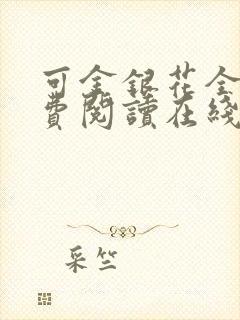 可金銀花全
費閱讀在綫
采竺